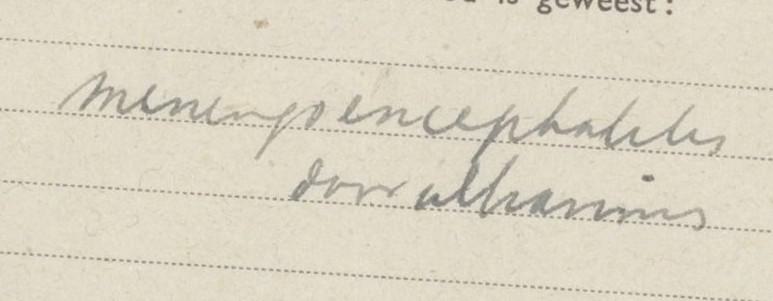 is geweest:
meningoencephalitis
door ultravirus